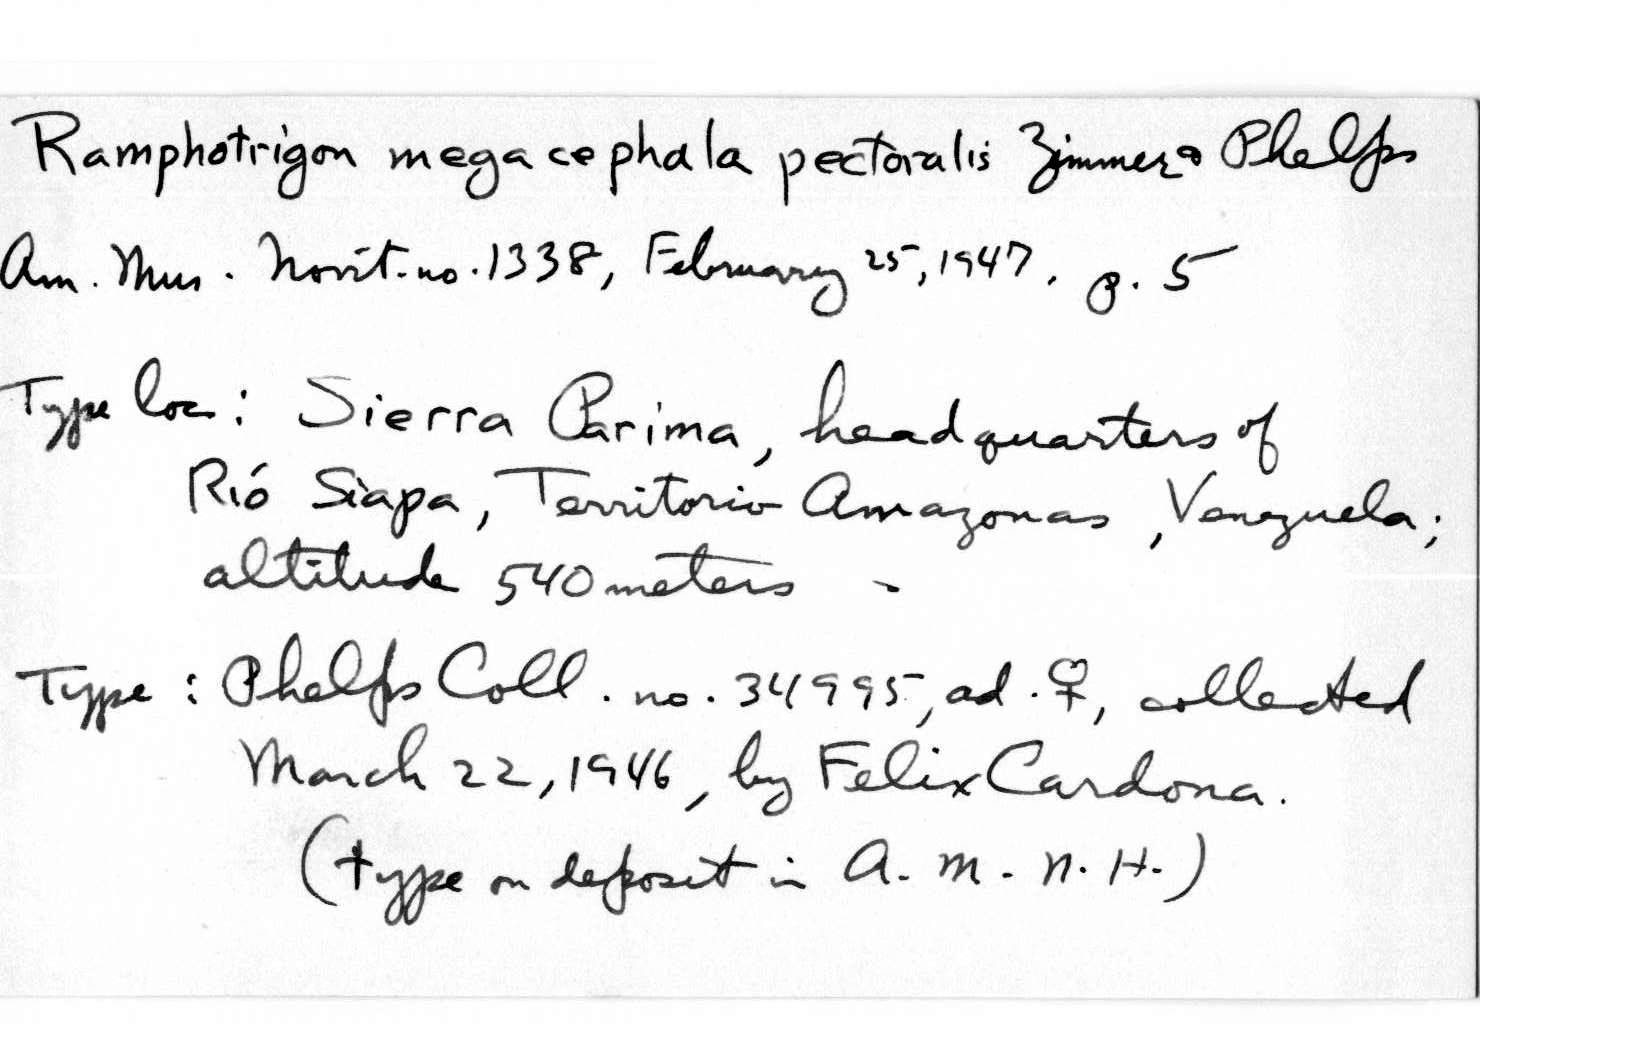 Ramphotrigon megacephala pectoralis Zimmer & Phelps
Am. Mus. Novit. no. 1338, February 25, 1947. p. 5
Type loc: Sierra Parima, headquarters of
Rió Siapa, Territorio Amazonas, Venezuela;
altitude 540 meters -
Type: Phelps Coll. no. 34995, ad. ♀, collected
March 22, 1946, by Felix Cardona.
(type on deposit in A. M. N. H.)